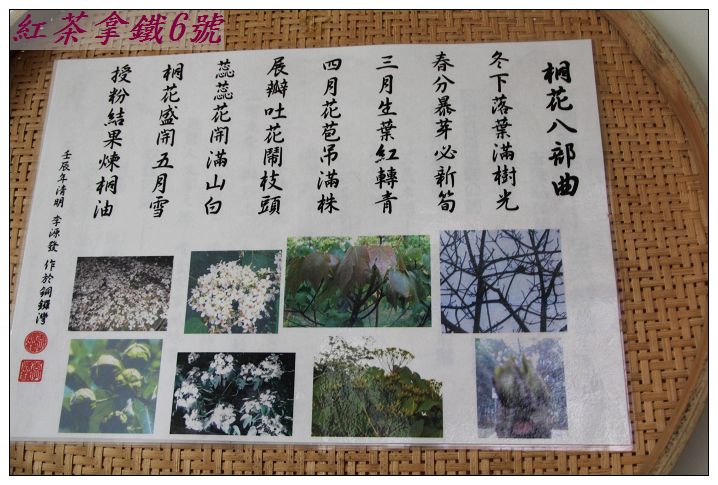 紅茶拿鐵6號
桐花八部曲
冬下落葉滿樹光
春分暴芽必新筍
三月生葉紅轉青
四月花苞吊滿株
展瓣吐花鬧枝頭
蕊蕊花開滿山白
桐花盛開五月雪
授粉結果煉桐油
壬辰年清明 李源發 作於銅鑼灣